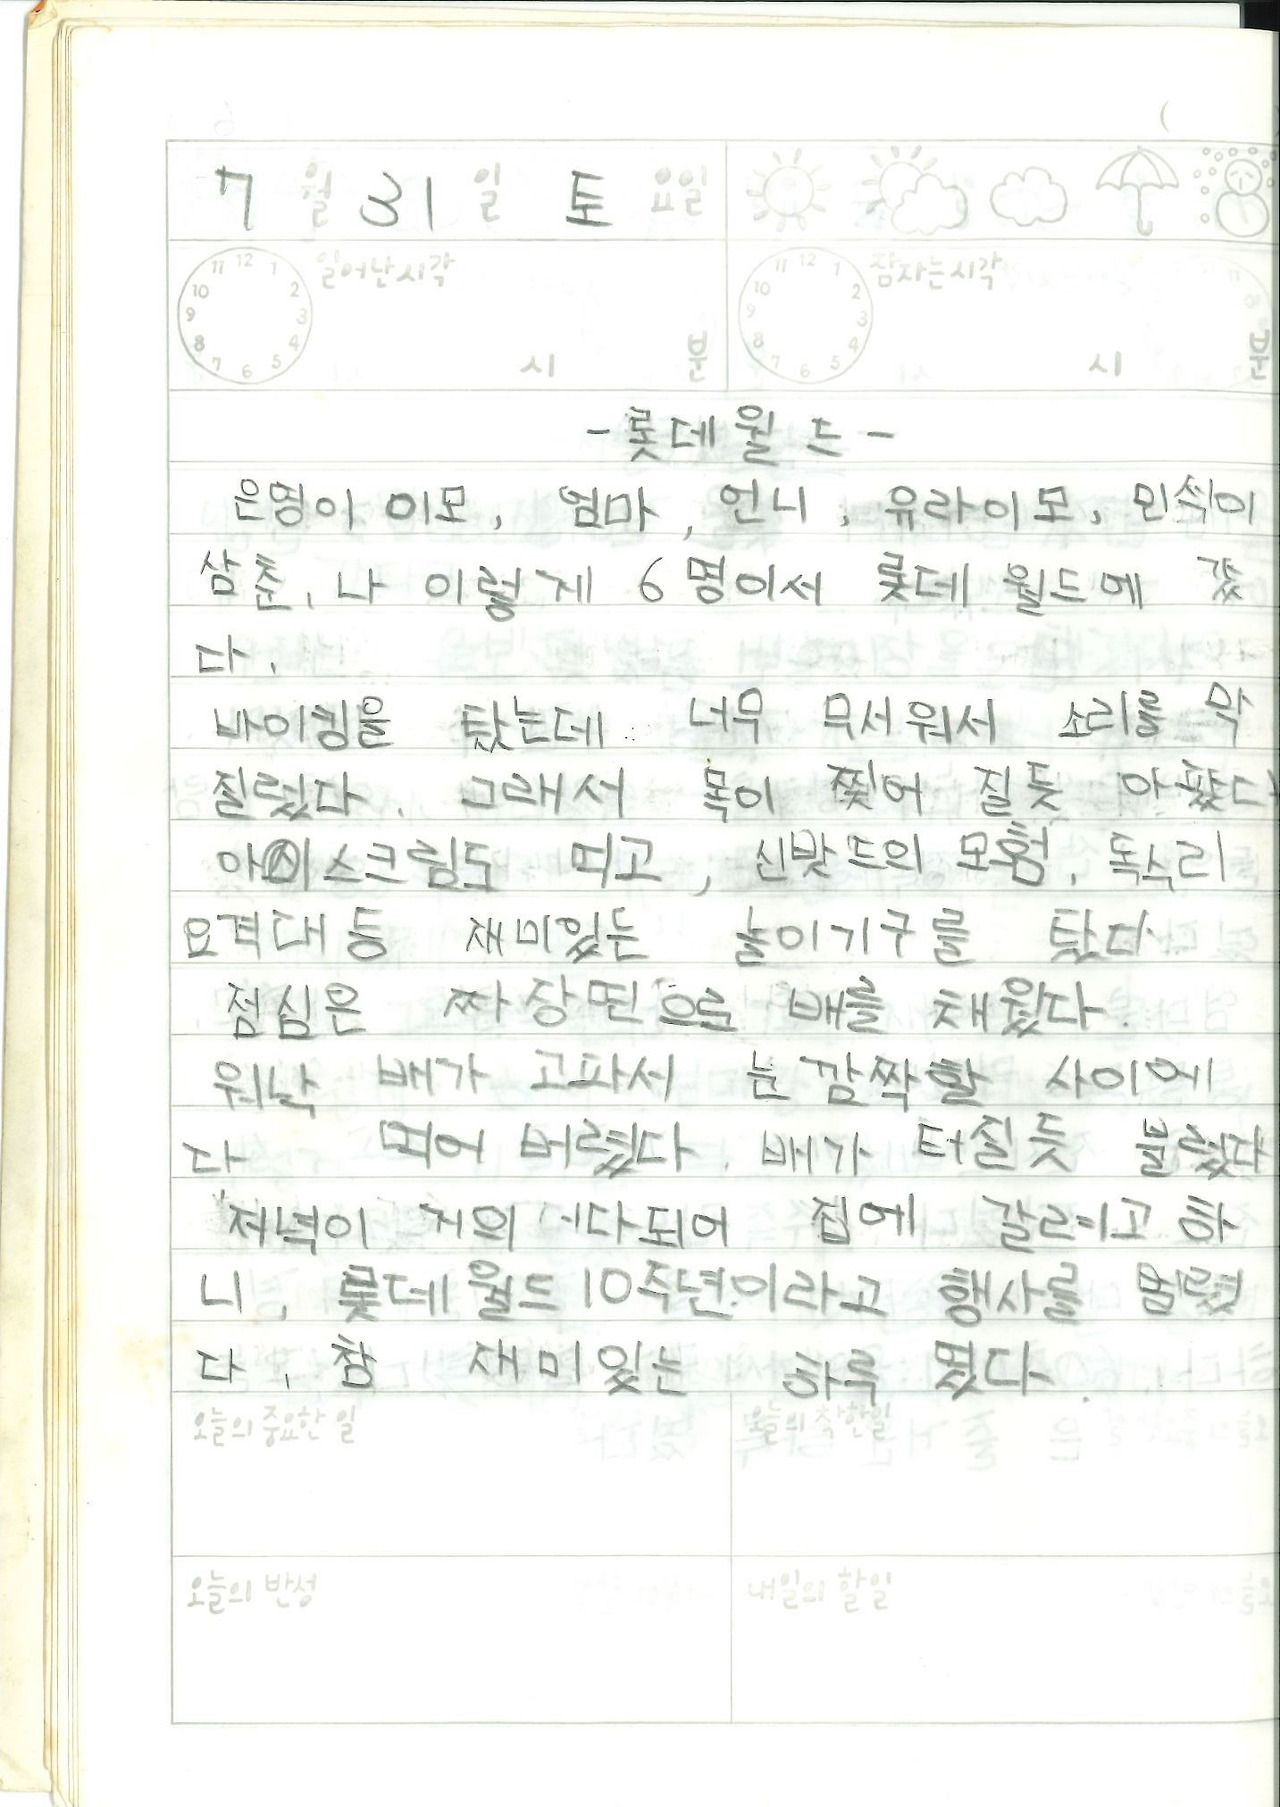 7 월 31 일 토 요일
일어난시각 잠자는시각
11 12 1 10 2 9 3 8 4 7 6 5 11 12 1 10 2 9 3 8 4 7 6 5
시 분 시 분
-롯데월드-
은영이 이모, 엄마, 언니, 유라이모, 민식이
삼춘, 나 이렇게 6명이서 롯데월드에 갔
다.
바이킹을 탔는데 너무 무서워서 소리를 막
질렀다. 그래서 목이 찢어 질듯 아팠다
아이스크림도 먹고, 신밧드의 모험, 독수리
요격대 등 재미있는 놀이기구를 탔다
점심은 짜장면으로 배를 채웠다.
워낙 배가 고파서 눈깜짝할 사이에
다 먹어 버렸다. 배가 터질듯 불렀다
저녁이 거의 다되어 집에 갈려고 하
니, 롯데월드10주년이라고 행사를 벌렸
다, 참 재미있는 하루 였다.
오늘의 중요한 일 오늘의 착한일
오늘의 반성 내일의 할일